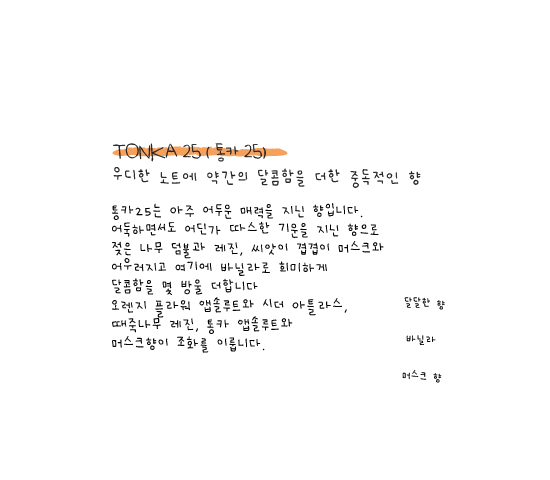 TONKA 25 (통카 25)
우디한 노트에 약간의 달콤함을 더한 중독적인 향
통카25는 아주 어두운 매력을 지닌 향입니다.
어둑하면서도 어딘가 따스한 기운을 지닌 향으로
젖은 나무 덤불과 레진, 씨앗이 겹겹이 머스크와
어우러지고 여기에 바닐라로 희미하게
달콤함을 몇 방울 더합니다
오렌지 플라워 앱솔루트와 시더 아틀라스,
때죽나무 레진, 통카 앱솔루트와
머스크향이 조화를 이룹니다.
달달한 향
바닐라
머스크 향